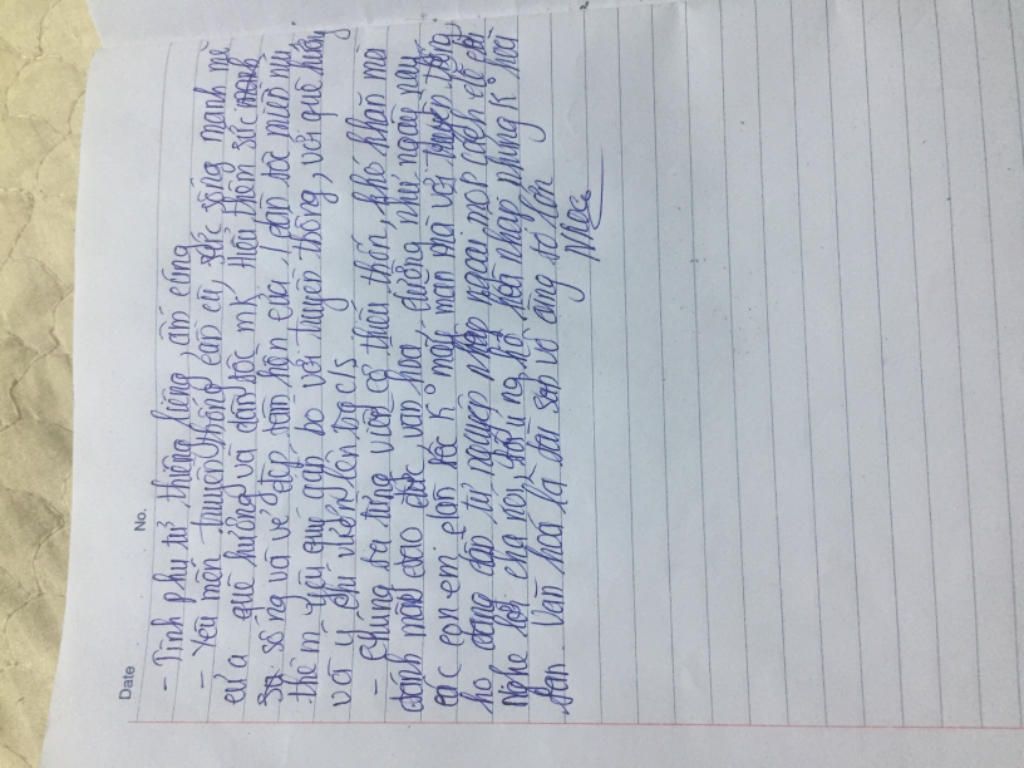 Date
No.
- Tình phụ tử thiêng liêng, ấm cúng
- Yêu mến truyền thống cần cù, sức sống mạnh mẽ
của quê hương và dân tộc mk, Hiểu thêm sức
sống và vẻ đẹp tâm hồn của 1 dân tộc miền núi
thêm yêu quý gắp bó với truyền thống, với quê hương
và ý chí vươn lên tog c/s
- Chúng ta từng vượt có thiếu thốn, khó khăn mà
đánh mất đạo đức văn hoá, dường như ngoài nay
các con em dân tộc k° mấy mặn mà với truyền thống
họ đang dần từ nguyệp ngoài mọi cách để
Nghe lời cha nói, đừng hổ hòa nhập nhưng k° hoà
tan. Văn hoá là tài sản vô cùng to lớn